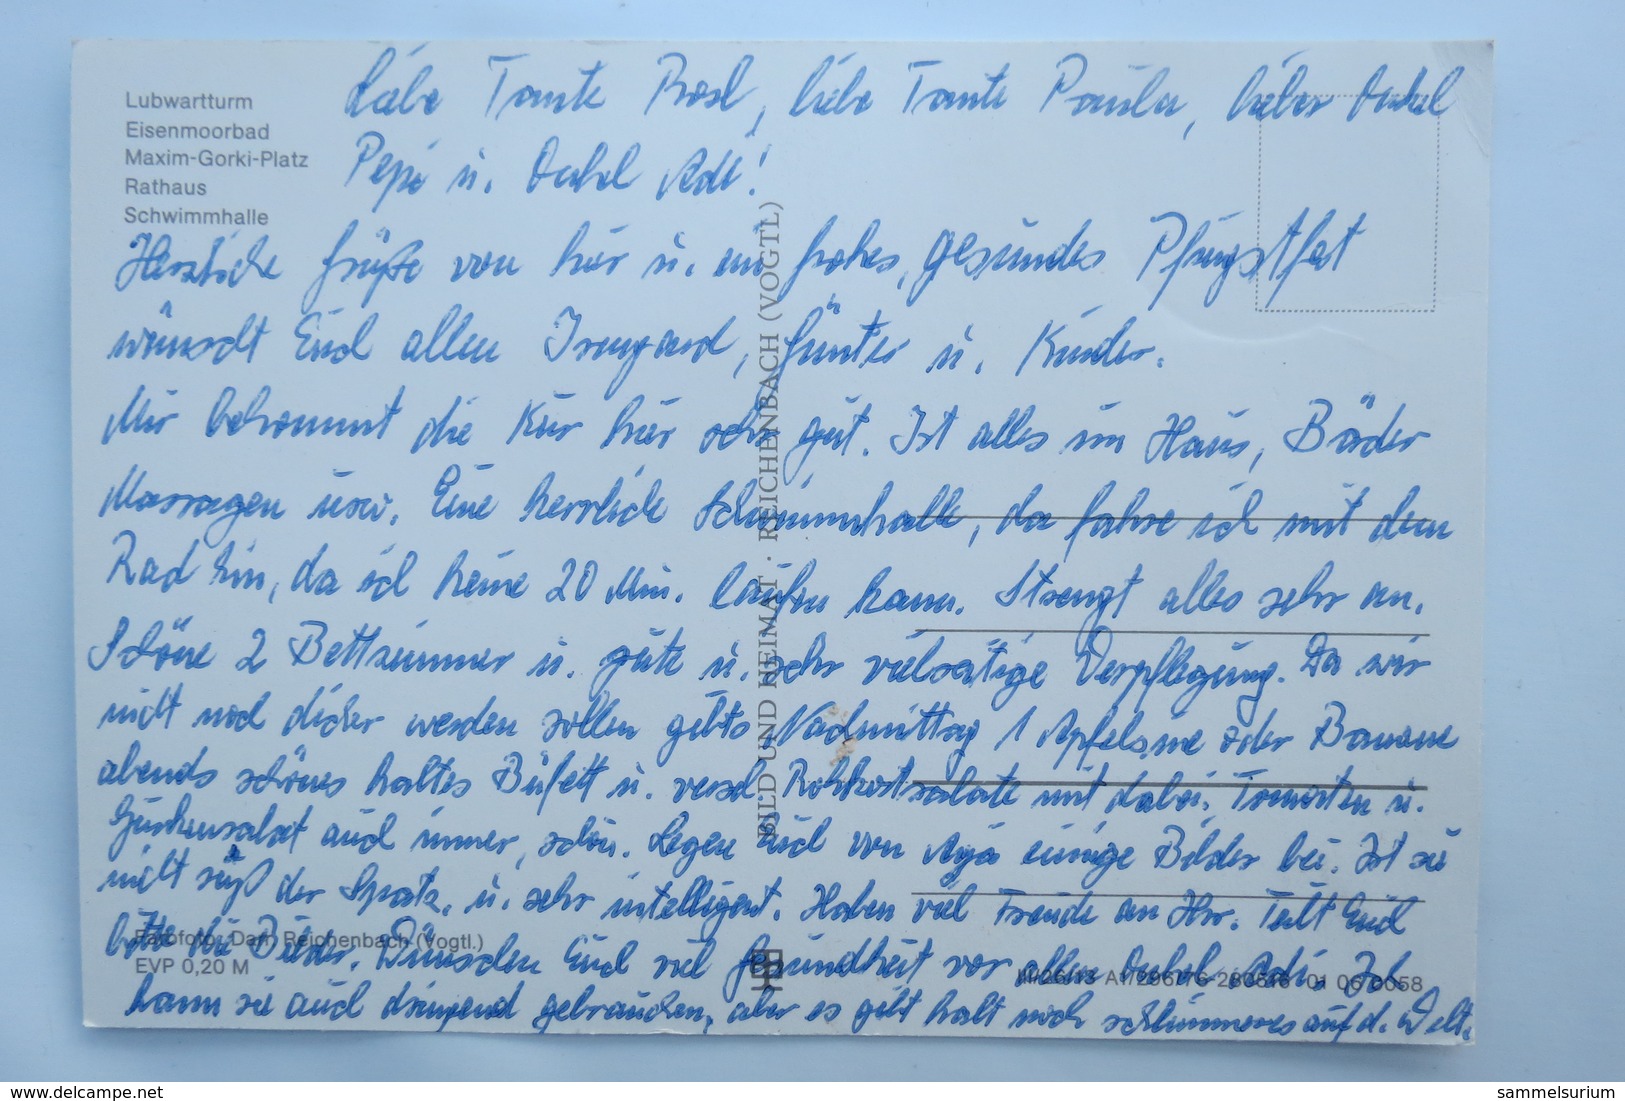 Lubwartturm
Eisenmoorbad
Maxim-Gorki-Platz
Rathaus
Schwimmhalle
Liebe Tante Rosl, liebe Tante Paula, lieber Onkel
Pepi u. Onkel Adi!
Herzliche Grüße von hier u. ein frohes, gesundes Pfingstfest
wünscht Euch allen Irmgard, Günter u. Kinder.
Mir bekommt die Kur hier sehr gut. Ist alles im Haus, Bäder
Massagen usw. Eine herrliche Schwimmhalle, da fahre ich mit dem
Rad hin, da ich keine 20 Min. laufen kann. Strengt alles sehr an.
Schöne 2 Bettzimmer u. gute u. sehr vielseitige Verpflegung. Da wir
nicht noch dicker werden sollen gibts Nachmittag 1 Apfelsine oder Banane
abends schönes kaltes Büfett u. versch. Rohkostsalate mit dabei. Tomaten u.
Gurkensalat auch immer, schön. Legen Euch von Anja einige Bilder bei. Ist sie
nicht süß der Spatz, u. sehr intelligent. Haben viel Freude an Ihr. Teilt Euch
bitte die Bilder. Wünschen Euch viel Gesundheit vor allem Onkel Adi. Ich
kann sie auch dringend gebrauchen, aber es gibt halt noch schlimmeres auf d. Welt.
BILD UND HEIMAT · REICHENBACH (VOGTL)
Reichenbach (Vogtl.)
EVP 0,20 M
III/26/13 01 06 0058
Ladenpreis - akpool.de
sammelsurium